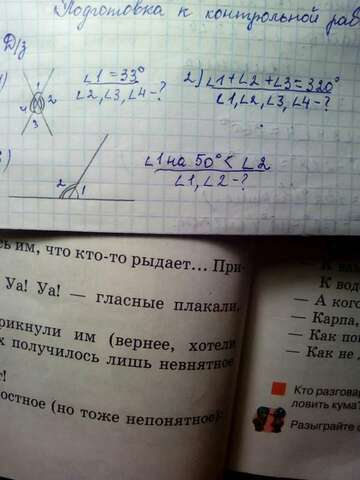 Подготовка к контрольной раб
Д/з
∠1 = 33°
∠2, ∠3, ∠4 - ?
1
4 2
3
2) ∠1 + ∠2 + ∠3 = 320°
∠1, ∠2, ∠3, ∠4 - ?
)
2 1
∠1 на 50° < ∠2
∠1, ∠2 - ?
сь им, что кто-то рыдает... При-
Уа! Уа! — гласные плакали,
рикнули им (вернее, хотели
х получилось лишь невнятное
т!
остное (но тоже непонятное):
К вод
— А кого
— Карпа,
— Как по
— Как не
Кто разговар
ловить кума?
Разыграйте с